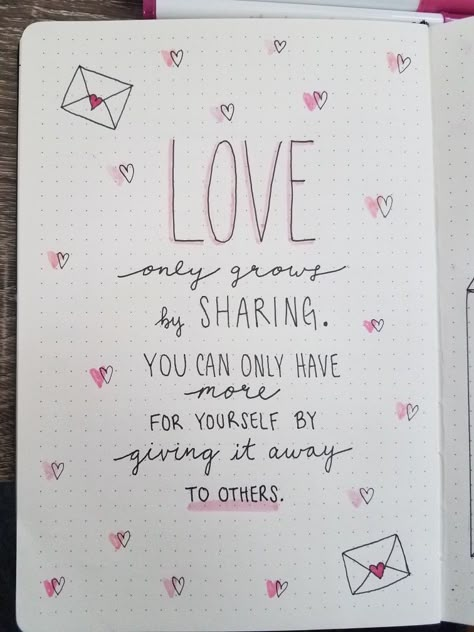 LOVE
only grows
by SHARING.
YOU CAN ONLY HAVE
more
FOR YOURSELF BY
giving it away
TO OTHERS.